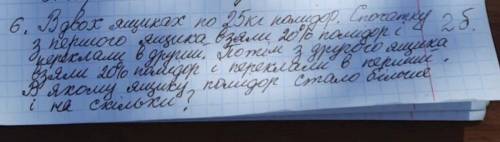 6. В двох ящиках по 25кг помидор. Спочатку
з первого ящика взяли 20% помидор і 2б.
переклали в другий. Потім з другого ящика
взяли 20% помидор і переклали в перший.
В якому ящику помидор стало більше
і на скільки?